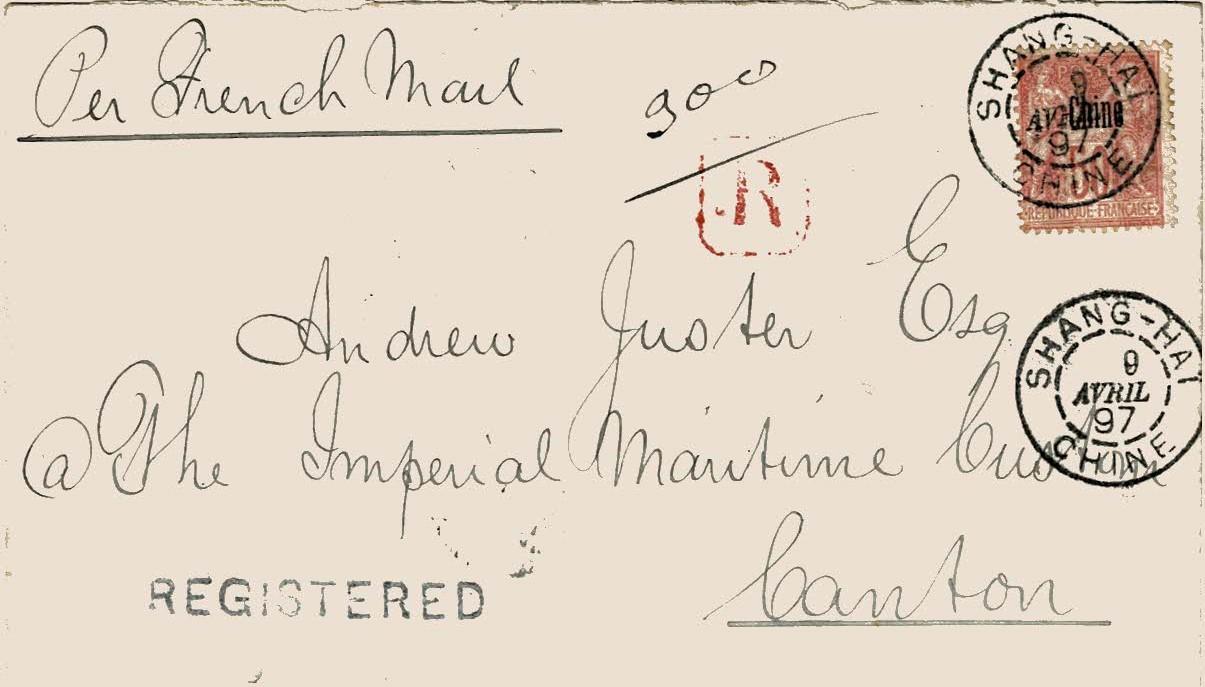 Per French Mail
900
R
SHANG-HAI
9
AVRIL
97
CHINE
Chine
50
REPUBLIQUE FRANÇAISE
Andrew Juster Esq
@ The Imperial Maritime Custom
SHANG-HAI
9
AVRIL
97
CHINE
Canton
REGISTERED